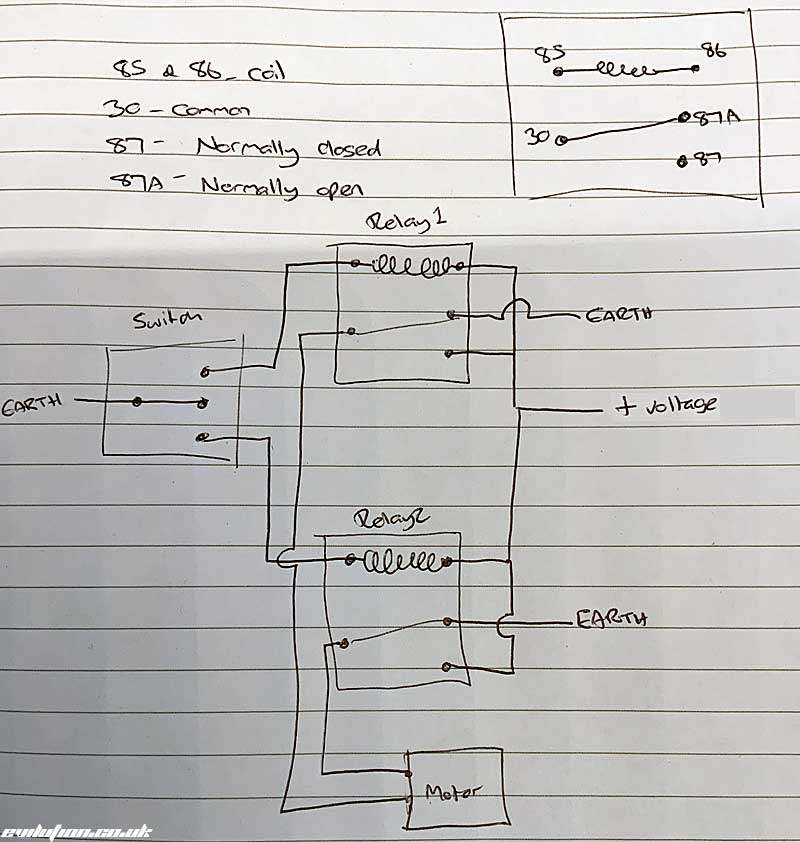 85 & 86 - coil
30 - Common
87 - Normally closed
87A - Normally open
85 86
30 87A
87
Relay 1
EARTH
Switch
EARTH
+ voltage
Relay 2
EARTH
Motor
evilution.co.uk